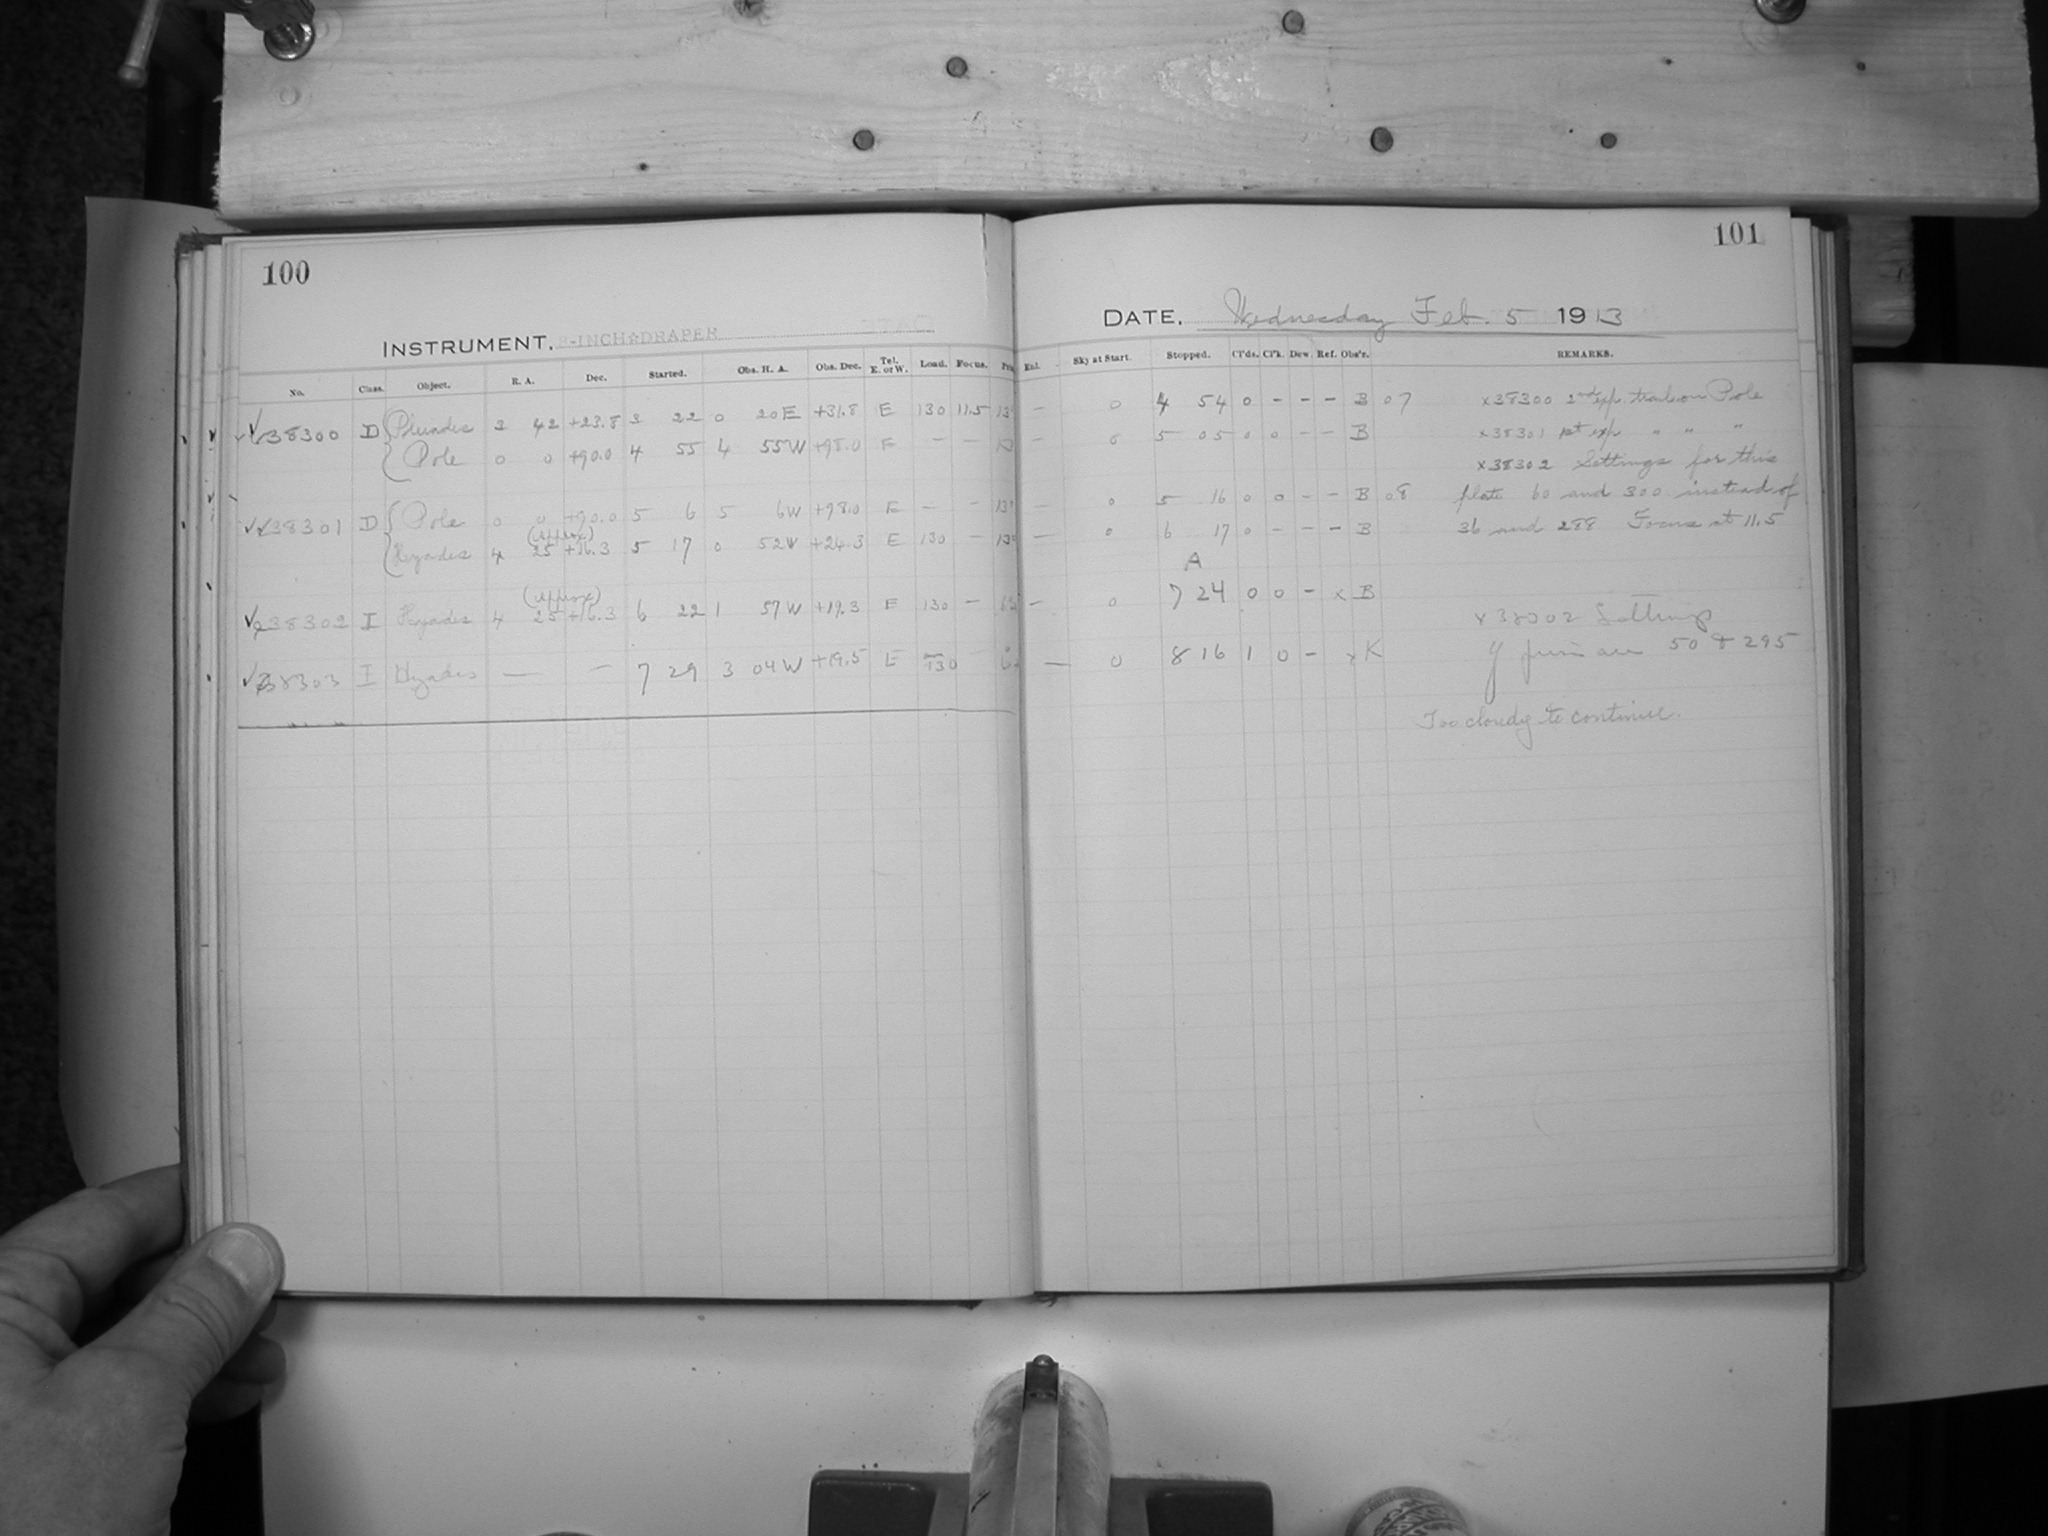 100
INSTRUMENT. 8-INCH DRAPER
No. Class. Object. R. A. Dec. Started. Obs. H. A. Obs. Dec. Tel. E. or W. Load. Focus.
38300 D Pleiades 3 42 +23.8 3 22 0 20 E +31.8 E 130 11.5
Pole 0 0 +90.0 4 55 4 55 W +98.0 E - -
38301 D Pole 0 0 +90.0 5 6 5 6 W +98.0 E - -
(approx)
Hyades 4 25 +16.3 5 17 0 52 W +24.3 E 130 -
(approx)
38302 I Hyades 4 25 +16.3 6 22 1 57 W +19.3 E 130 -
38303 I Hyades — — 7 29 3 04 W +19.5 E 130
101
DATE. Wednesday Feb. 5 1913
Enl. Sky at Start. Stopped. Cl'ds. Cl'k. Dew. Ref. Obs'r. REMARKS.
— 0 4 54 0 - - - B 07 x38300 2nd exp. trails on Pole
— 0 5 05 0 0 - - B x38301 1st exp. " " "
x38302 Settings for this
— 0 5 16 0 0 - - B 08 plate 60 and 300 instead of
— 0 6 17 0 - - - B 36 and 288 Focus at 11.5
A
— 0 7 24 0 0 - x B
x38302 Settings
— 0 8 16 1 0 - x K
of prism are 50 & 295
Too cloudy to continue.